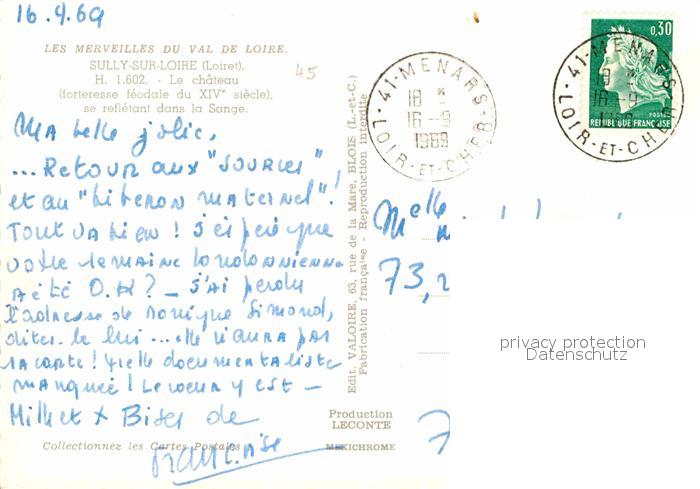 16.9.69
LES MERVEILLES DU VAL DE LOIRE.
SULLY-SUR-LOIRE (Loiret).
H. 1.602. - Le château
(forteresse féodale du XIVe siècle),
se reflétant dans la Sange.
45
Ma belle jolie,
...Retour aux "sources",
et au "biberon maternel"!
Tout va bien ! J'espère que
votre semaine londonnienne
a été O.K? _ J'ai perdu
l'adresse de Monique Simond,
dites-le lui... elle n'aura pas
sa carte ! Quelle documentaliste
manquée ! Le coeur y est _
Mille et X Bises de
Françoise
Collectionnez les Cartes Postales
MEXICHROME
Production
LECONTE
Edit. VALOIRE, 63, rue de la Mare, BLOIS (L.-et-C.)
Fabrication française - Reproduction interdite
41-MENARS
18 H
16-9
1969
LOIR-ET-CHER
0,30
POSTES
REPUBLIQUE FRANÇAISE
41-MENARS
18
16-9
LOIR-ET-CHER
Melle
73,
7
privacy protection
Datenschutz